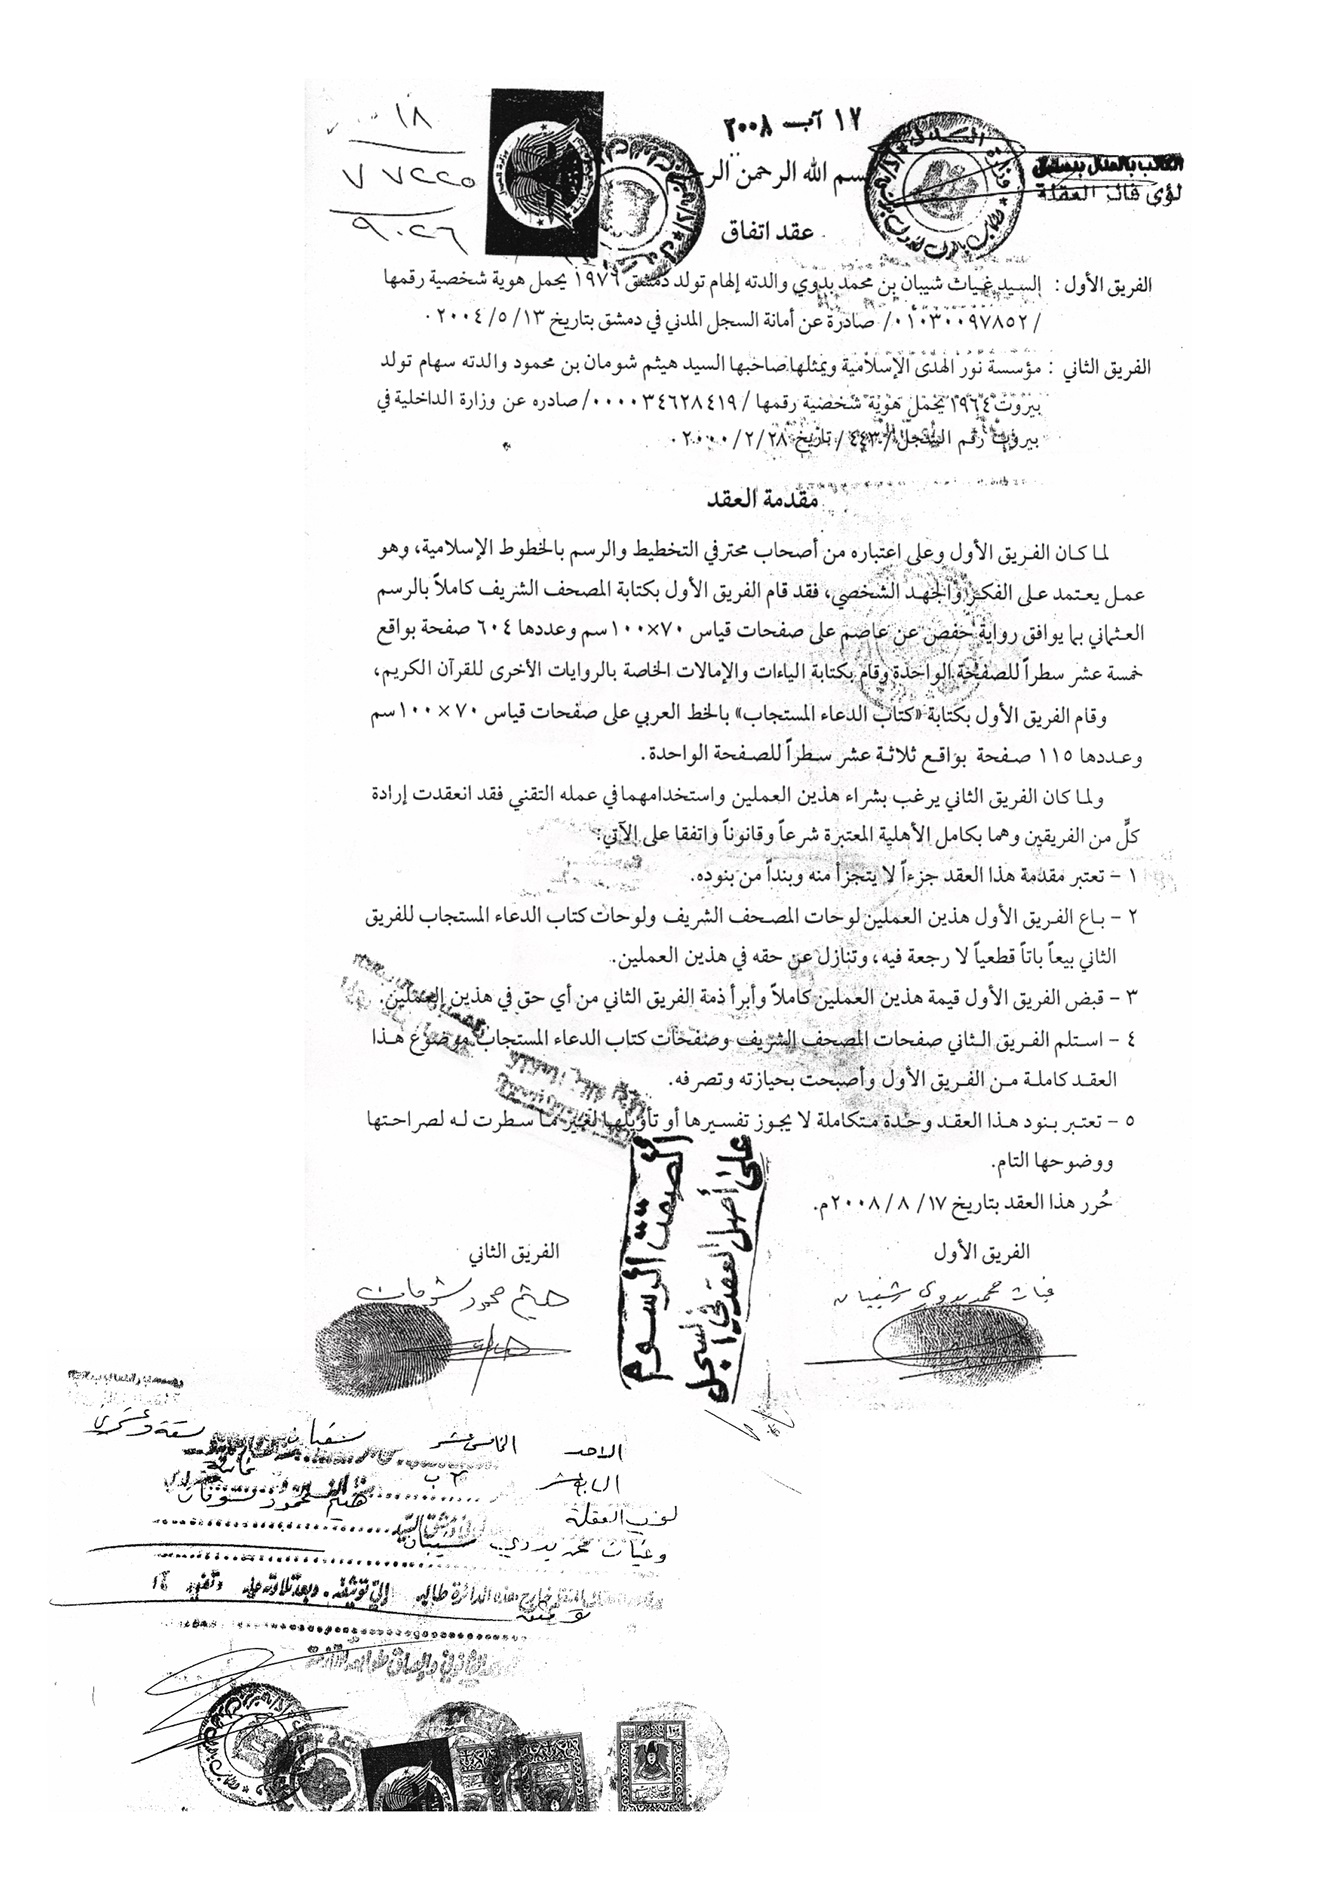 ١٨
١٧ آب ٢٠٠٨
الكاتب بالعدل بدمشق
٧٧٢٢٥
بسم الله الرحمن الرحيم
لؤي العقلة
٩٠٢٦
عقد اتفاق
الفريق الأول : السيد غياث شيبان بن محمد بدوي والدته إلهام تولد دمشق ١٩٧٦ يحمل هوية شخصية رقمها
/٠١٠٣٠٠٩٧٨٥٢/ صادرة عن أمانة السجل المدني في دمشق بتاريخ ١٣/ ٥/ ٢٠٠٤ .
الفريق الثاني : مؤسسة نور الهدى الإسلامية ويمثلها صاحبها السيد هيثم شومان بن محمود والدته سهام تولد
بيروت ١٩٦٤ يحمل هوية شخصية رقمها /٠٠٠٠٣٤٦٢٨٤١٩/ صادره عن وزارة الداخلية في
بيروت رقم السجل /٤٤٣/ بتاريخ ٢٨/ ٢/ ٢٠٠٠ .
مقدمة العقد
لما كان الفريق الأول وعلى اعتباره من أصحاب محترفي التخطيط والرسم بالخطوط الإسلامية، وهو
عمل يعتمد على الفكر والجهد الشخصي، فقد قام الفريق الأول بكتابة المصحف الشريف كاملاً بالرسم
العثماني بما يوافق رواية حفص عن عاصم على صفحات قياس ٧٠×١٠٠سم وعددها ٦٠٤ صفحة بواقع
خمسة عشر سطراً للصفحة الواحدة وقام بكتابة الياءات والإمالات الخاصة بالروايات الأخرى للقرآن الكريم،
وقام الفريق الأول بكتابة «كتاب الدعاء المستجاب» بالخط العربي على صفحات قياس ٧٠ × ١٠٠سم
وعددها ١١٥ صفحة بواقع ثلاثة عشر سطراً للصفحة الواحدة.
ولما كان الفريق الثاني يرغب بشراء هذين العملين واستخدامهما في عمله التقني فقد انعقدت إرادة
كلٍّ من الفريقين وهما بكامل الأهلية المعتبرة شرعاً وقانوناً واتفقا على الآتي:
١ – تعتبر مقدمة هذا العقد جزءاً لا يتجزأ منه وبنداً من بنوده.
٢ – باع الفريق الأول هذين العملين لوحات المصحف الشريف ولوحات كتاب الدعاء المستجاب للفريق
الثاني بيعاً باتاً قطعياً لا رجعة فيه، وتنازل عن حقه في هذين العملين.
٣ – قبض الفريق الأول قيمة هذين العملين كاملاً وأبرأ ذمة الفريق الثاني من أي حق في هذين العملين.
٤ – استلم الفريق الثاني صفحات المصحف الشريف وصفحات كتاب الدعاء المستجاب موضوع هذا
العقد كاملة من الفريق الأول وأصبحت بحيازته وتصرفه.
٥ – تعتبر بنود هذا العقد وحدة متكاملة لا يجوز تفسيرها أو تأويلها لغير ما سطرت له لصراحتها
ووضوحها التام.
حُرر هذا العقد بتاريخ ١٧/ ٨/ ٢٠٠٨م.
الصقت الرسوم
على أصل العقد في السجل
الفريق الأول
الفريق الثاني
غياث محمد بدوي شيبان
هيثم محمود شومان
الاحد الخامس عشر شعبان تسعة وعشرين
السابع عشر آب ثمانية
هيثم محمود شومان
لؤي العقلة
وغياث محمد بدوي شيبان
خارج هذه الدائرة طالب إلى توثيقه . وبعد تلاوته